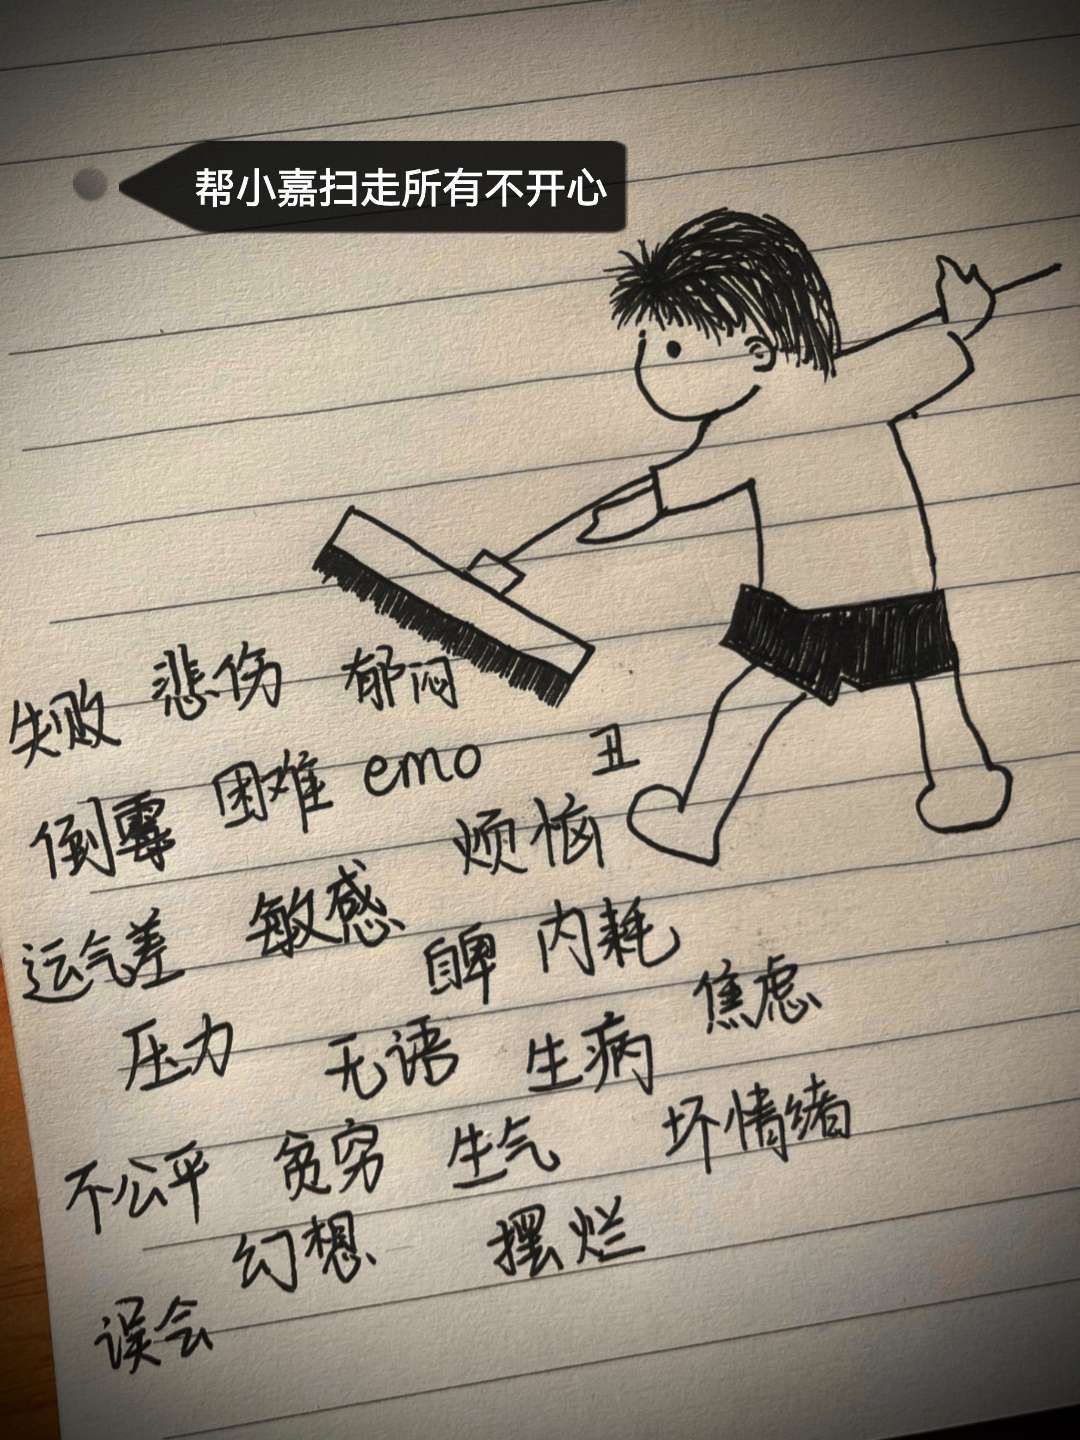 帮小嘉扫走所有不开心
失败 悲伤 郁闷
倒霉 困难 emo 丑
运气差 敏感 烦恼
自卑 内耗
压力 无语 生病 焦虑
不公平 贫穷 生气 坏情绪
幻想 摆烂
误会